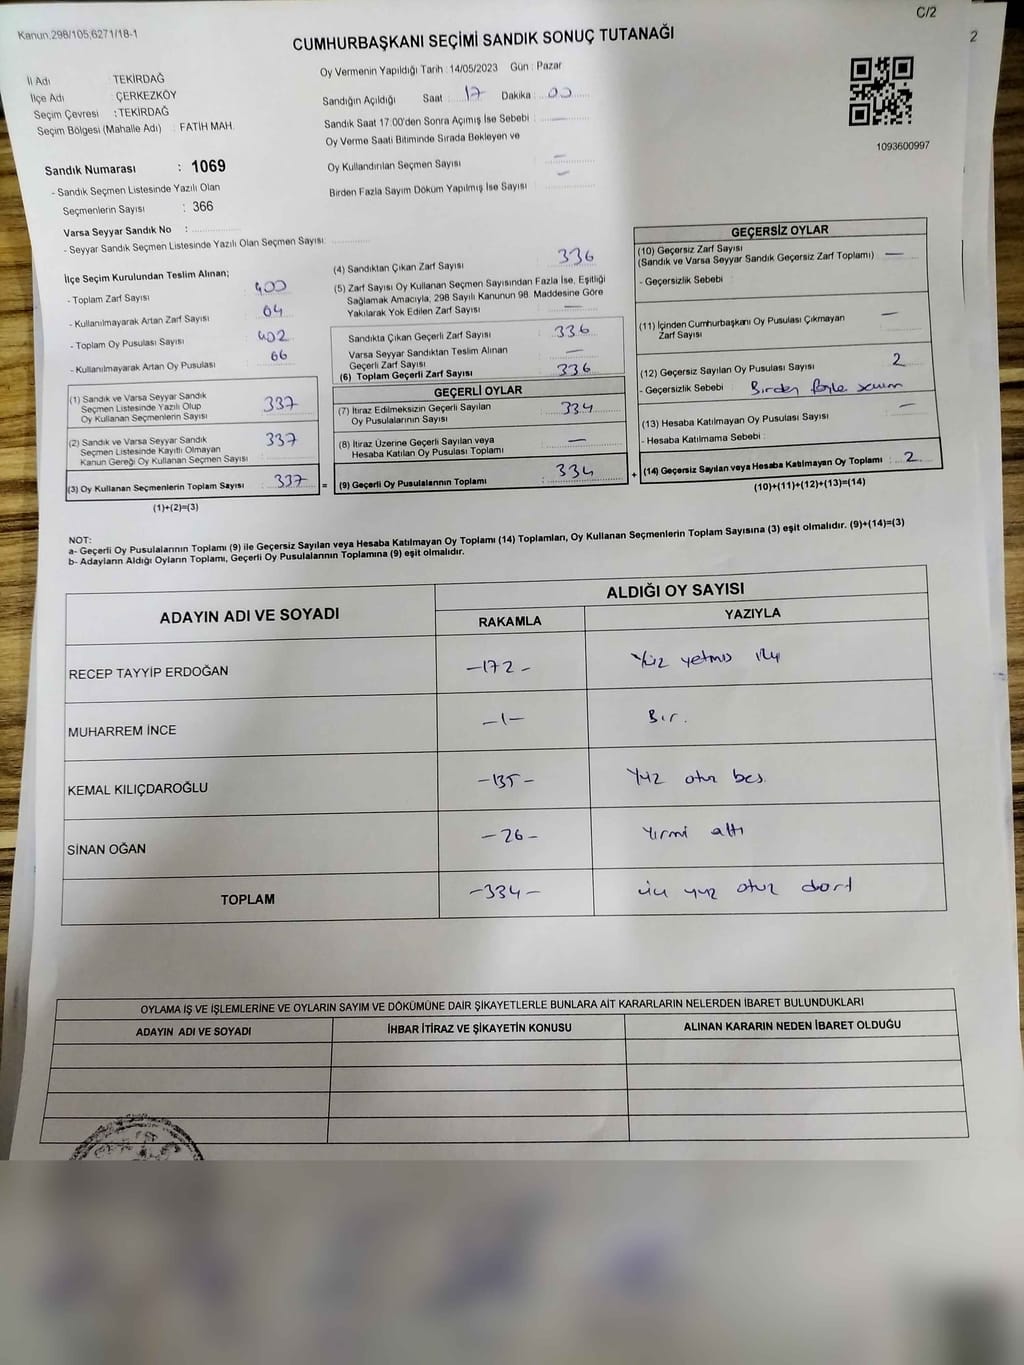 Kanun.298/105,6271/18-1
C/2
2
CUMHURBAŞKANI SEÇİMİ SANDIK SONUÇ TUTANAĞI
İl Adı : TEKİRDAĞ
İlçe Adı : ÇERKEZKÖY
Seçim Çevresi : TEKİRDAĞ
Seçim Bölgesi (Mahalle Adı) : FATİH MAH.
Oy Vermenin Yapıldığı Tarih : 14/05/2023 Gün : Pazar
Sandığın Açıldığı Saat : 17 Dakika : 00
Sandık Saat 17:00'den Sonra Açımış İse Sebebi : —
Oy Verme Saati Bitiminde Sırada Bekleyen ve
Oy Kullandırılan Seçmen Sayısı : —
Birden Fazla Sayım Döküm Yapılmış İse Sayısı : —
1093600997
Sandık Numarası : 1069
- Sandık Seçmen Listesinde Yazılı Olan
Seçmenlerin Sayısı : 366
Varsa Seyyar Sandık No :
- Seyyar Sandık Seçmen Listesinde Yazılı Olan Seçmen Sayısı:
İlçe Seçim Kurulundan Teslim Alınan;
- Toplam Zarf Sayısı 400
- Kullanılmayarak Artan Zarf Sayısı 64
- Toplam Oy Pusulası Sayısı 402
- Kullanılmayarak Artan Oy Pusulası 66
(1) Sandık ve Varsa Seyyar Sandık
Seçmen Listesinde Yazılı Olup
Oy Kullanan Seçmenlerin Sayısı 337
(2) Sandık ve Varsa Seyyar Sandık
Seçmen Listesinde Kayıtlı Olmayan
Kanun Gereği Oy Kullanan Seçmen Sayısı 337
(3) Oy Kullanan Seçmenlerin Toplam Sayısı 337 =
(1)+(2)=(3)
(4) Sandıktan Çıkan Zarf Sayısı 336
(5) Zarf Sayısı Oy Kullanan Seçmen Sayısından Fazla İse, Eşitliği
Sağlamak Amacıyla, 298 Sayılı Kanunun 98. Maddesine Göre
Yakılarak Yok Edilen Zarf Sayısı : —
Sandıkta Çıkan Geçerli Zarf Sayısı 336
Varsa Seyyar Sandıktan Teslim Alınan
Geçerli Zarf Sayısı —
(6) Toplam Geçerli Zarf Sayısı 336
GEÇERLİ OYLAR
(7) İtiraz Edilmeksizin Geçerli Sayılan
Oy Pusulalarının Sayısı 334
(8) İtiraz Üzerine Geçerli Sayılan veya
Hesaba Katılan Oy Pusulası Toplamı : —
(9) Geçerli Oy Pusulalarının Toplamı : 334 +
GEÇERSİZ OYLAR
(10) Geçersiz Zarf Sayısı
(Sandık ve Varsa Seyyar Sandık Geçersiz Zarf Toplamı) —
- Geçersizlik Sebebi :
(11) İçinden Cumhurbaşkanı Oy Pusulası Çıkmayan
Zarf Sayısı —
(12) Geçersiz Sayılan Oy Pusulası Sayısı 2
- Geçersizlik Sebebi : Birden
(13) Hesaba Katılmayan Oy Pusulası Sayısı —
- Hesaba Katılmama Sebebi :
(14) Geçersiz Sayılan veya Hesaba Katılmayan Oy Toplamı : 2
(10)+(11)+(12)+(13)=(14)
NOT:
a- Geçerli Oy Pusulalarının Toplamı (9) ile Geçersiz Sayılan veya Hesaba Katılmayan Oy Toplamı (14) Toplamları, Oy Kullanan Seçmenlerin Toplam Sayısına (3) eşit olmalıdır. (9)+(14)=(3)
b- Adayların Aldığı Oyların Toplamı, Geçerli Oy Pusulalarının Toplamına (9) eşit olmalıdır.
ADAYIN ADI VE SOYADI ALDIĞI OY SAYISI
RAKAMLA YAZIYLA
RECEP TAYYİP ERDOĞAN -172- Yüz yetmiş iki
MUHARREM İNCE -1- Bir.
KEMAL KILIÇDAROĞLU -135- Yüz otuz beş
SİNAN OĞAN -26- Yirmi altı
TOPLAM -334- üç yüz otuz dört
OYLAMA İŞ VE İŞLEMLERİNE VE OYLARIN SAYIM VE DÖKÜMÜNE DAİR ŞİKAYETLERLE BUNLARA AİT KARARLARIN NELERDEN İBARET BULUNDUKLARI
ADAYIN ADI VE SOYADI İHBAR İTİRAZ VE ŞİKAYETİN KONUSU ALINAN KARARIN NEDEN İBARET OLDUĞU